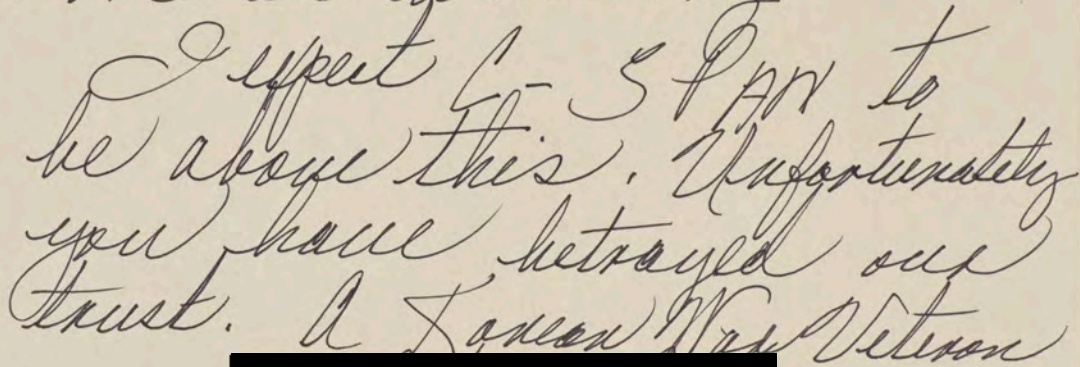 I expect C-SPAN to
be above this. Unfortunately
you have betrayed our
trust. A Korean War Veteran